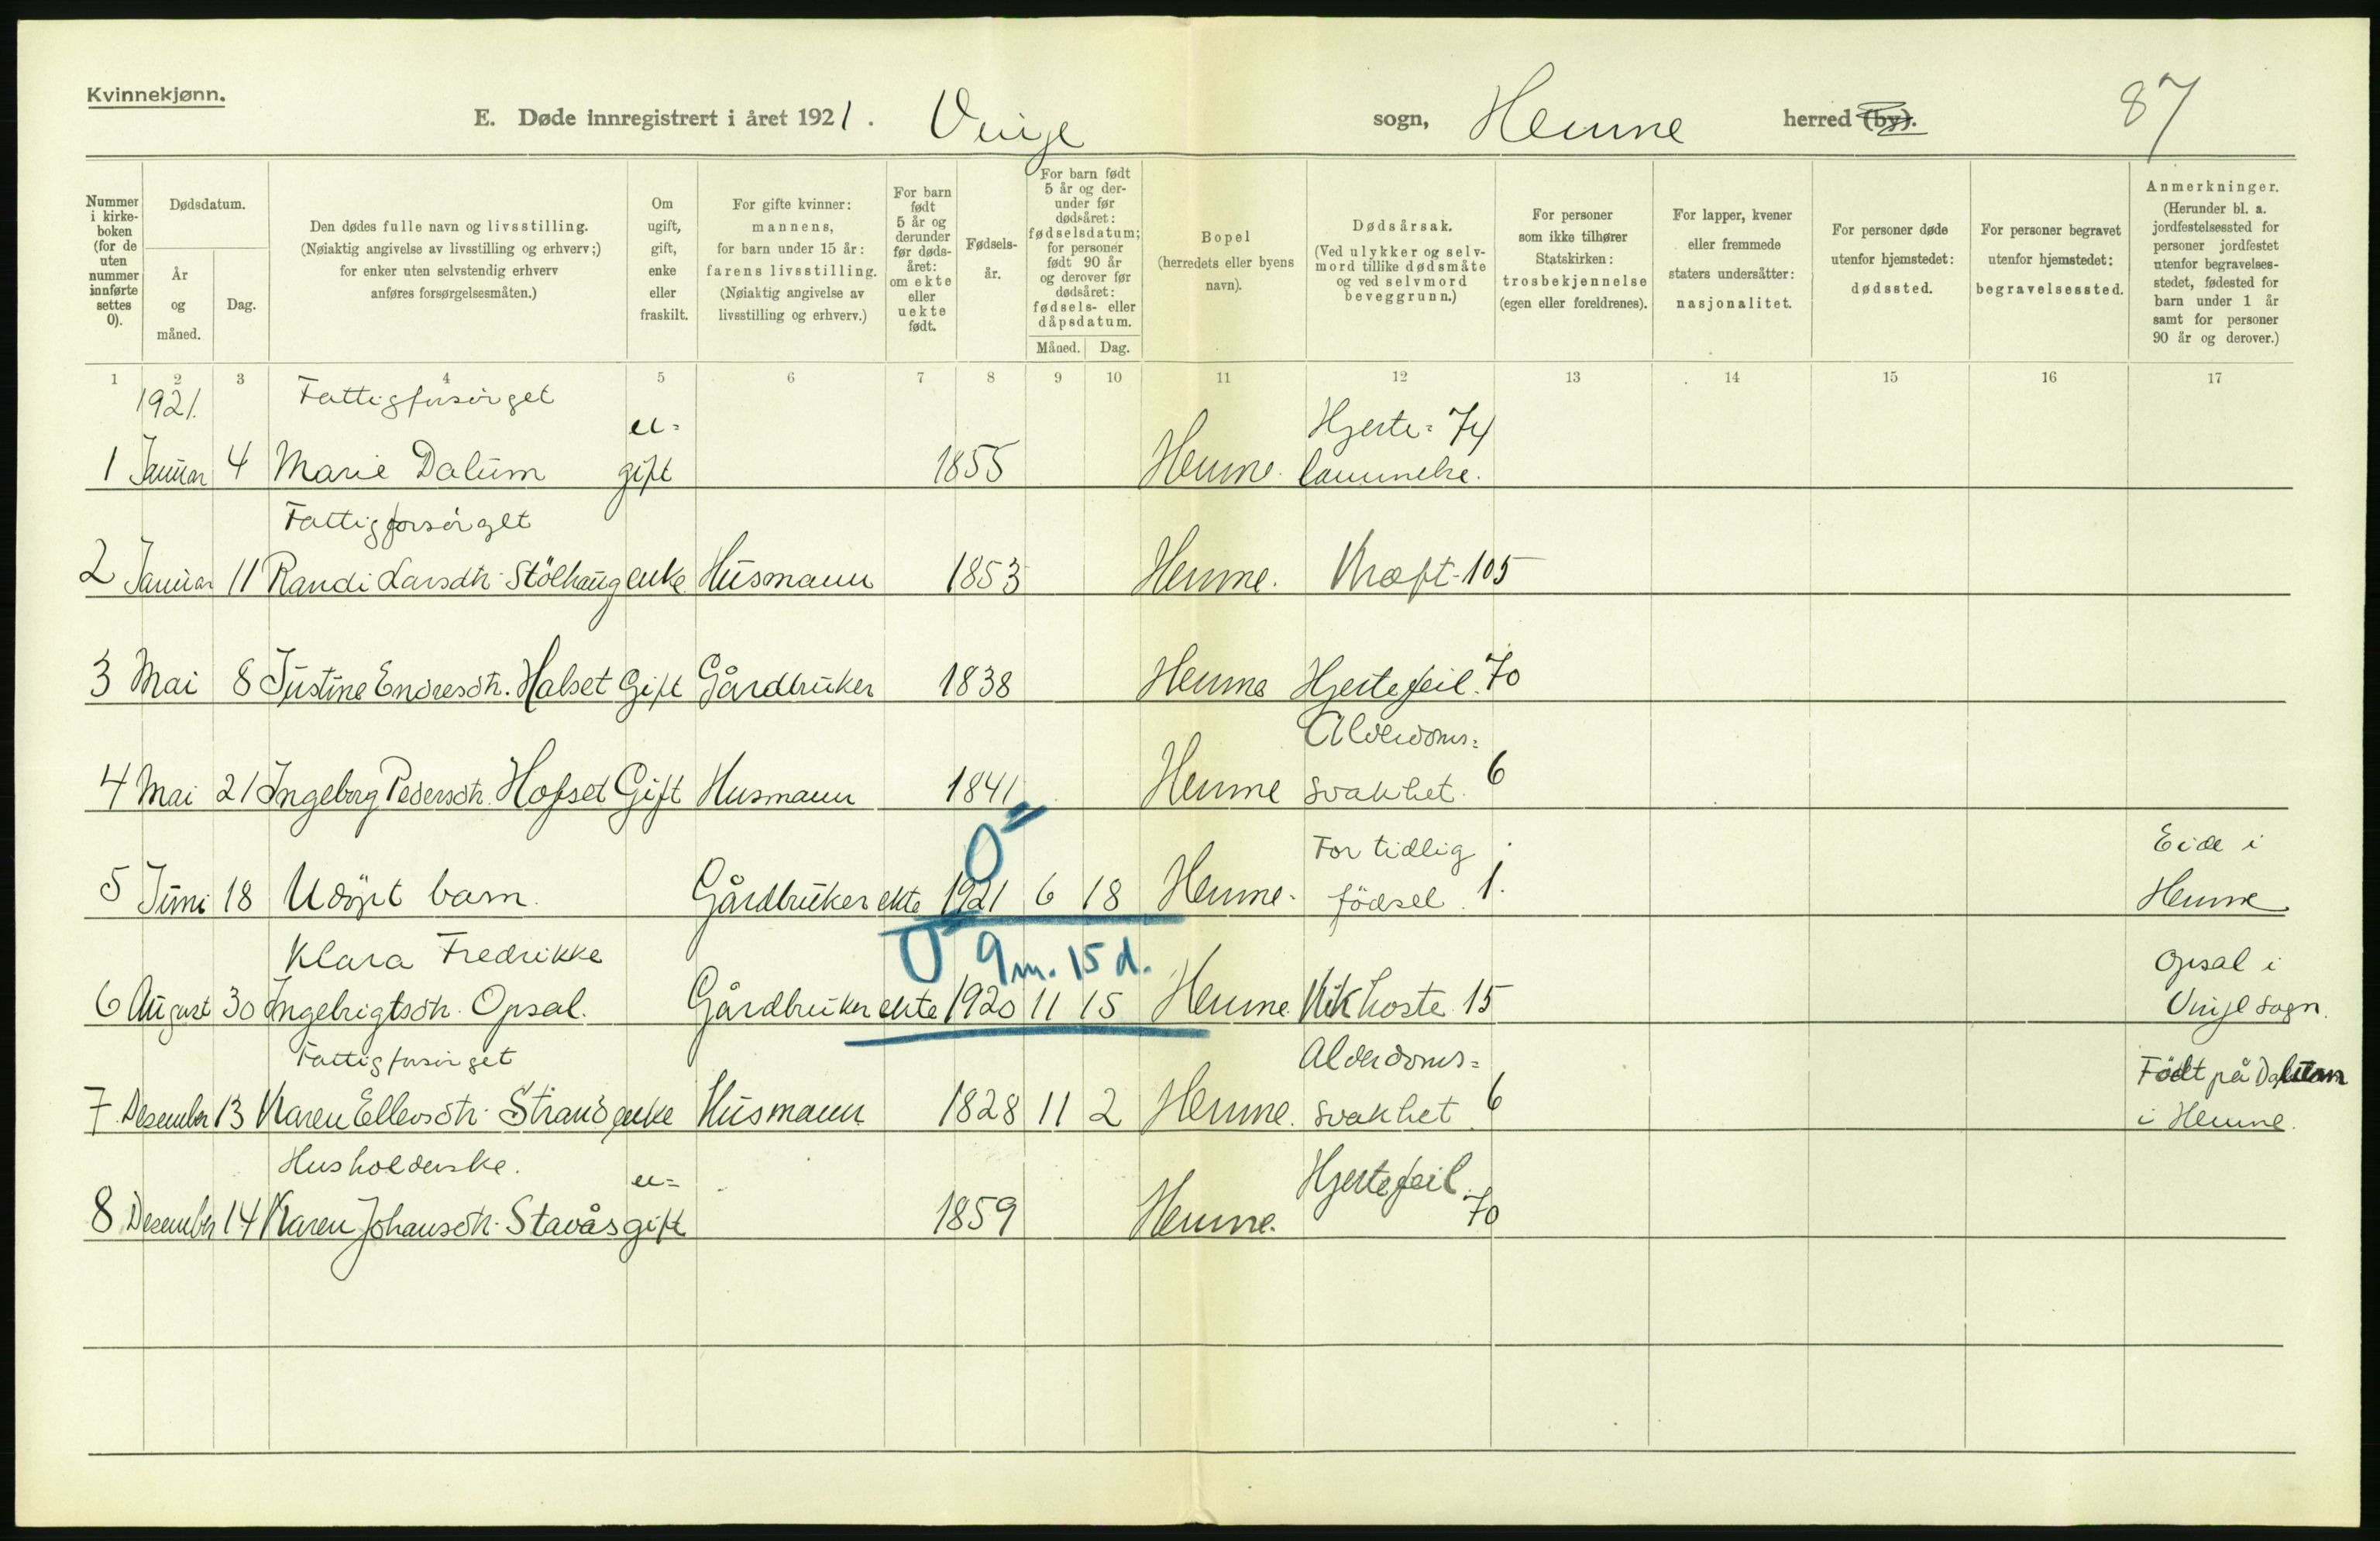 Kvinnekjønn.
E. Døde innregistrert i året 1921. Vinje sogn, Hemne herred (by). 87
Nummer i kirkeboken (for de uten nummer innførte settes 0).
Dødsdatum.
År og måned.
Dag.
Den dødes fulle navn og livsstilling.
(Nøiaktig angivelse av livsstilling og erhverv;)
for enker uten selvstendig erhverv
anføres forsørgelsesmåten.)
Om ugift, gift, enke eller fraskilt.
For gifte kvinner: mannens, for barn under 15 år: farens livsstilling. (Nøiaktig angivelse av livsstilling og erhverv.)
For barn født 5 år og derunder før dødsåret: om ekte eller uekte født.
Fødselsår.
For barn født 5 år og derunder før dødsåret: fødselsdatum; for personer født 90 år og derover før dødsåret: fødsels- eller dåpsdatum.
Måned. Dag.
Bopel (herredets eller byens navn).
Dødsårsak. (Ved ulykker og selvmord tillike dødsmåte og ved selvmord beveggrunn.)
For personer som ikke tilhører Statskirken: trosbekjennelse (egen eller foreldrenes).
For lapper, kvener eller fremmede staters undersåtter: nasjonalitet.
For personer døde utenfor hjemstedet: dødssted.
For personer begravet utenfor hjemstedet: begravelsessted.
Anmerkninger. (Herunder bl. a. jordfestelsessted for personer jordfestet utenfor begravelsesstedet, fødested for barn under 1 år samt for personer 90 år og derover.)
1 2 3 4 5 6 7 8 9 10 11 12 13 14 15 16 17
1921. Fattigforsörget
u= Hjerte= 74
1 Januar 4 Marie Dalum gift 1855 Hemne. lammelse.
Fattigforsörget
2 Januar 11 Randi Larsdtr. Stölhaug enke Husmann 1853 Hemne. Kræft - 105
3 Mai 8 Justine Endresdtr. Halset Gift Gårdbruker 1838 Hemne Hjertefeil. 70
Alderdoms=
4 Mai 21 Ingeborg Pedersdtr. Hofset Gift Husmann 1841 Hemne svakhet. 6
0 For tidlig Eide i
5 Juni 18 Udöpt barn. Gårdbruker ekte 1921 6 18 Hemne. födsel. 1. Hemne
Klara Fredrikke 0 9 m. 15 d. Opsal i
6 August 30 Ingebrigtsdtr. Opsal. Gårdbruker ekte 1920 11 15 Hemne. Kikhoste 15 Vinje sogn.
Fattigforsörget Alderdoms= Födt på Dalum
7 Desember 13 Karen Ellevsdtr. Strand enke Husmann 1828 11 2 Hemne. svakhet 6 i Hemne.
Husholderske. u= Hjertefeil.
8 Desember 14 Karen Johansdtr. Stavås gift 1859 Hemne. 70